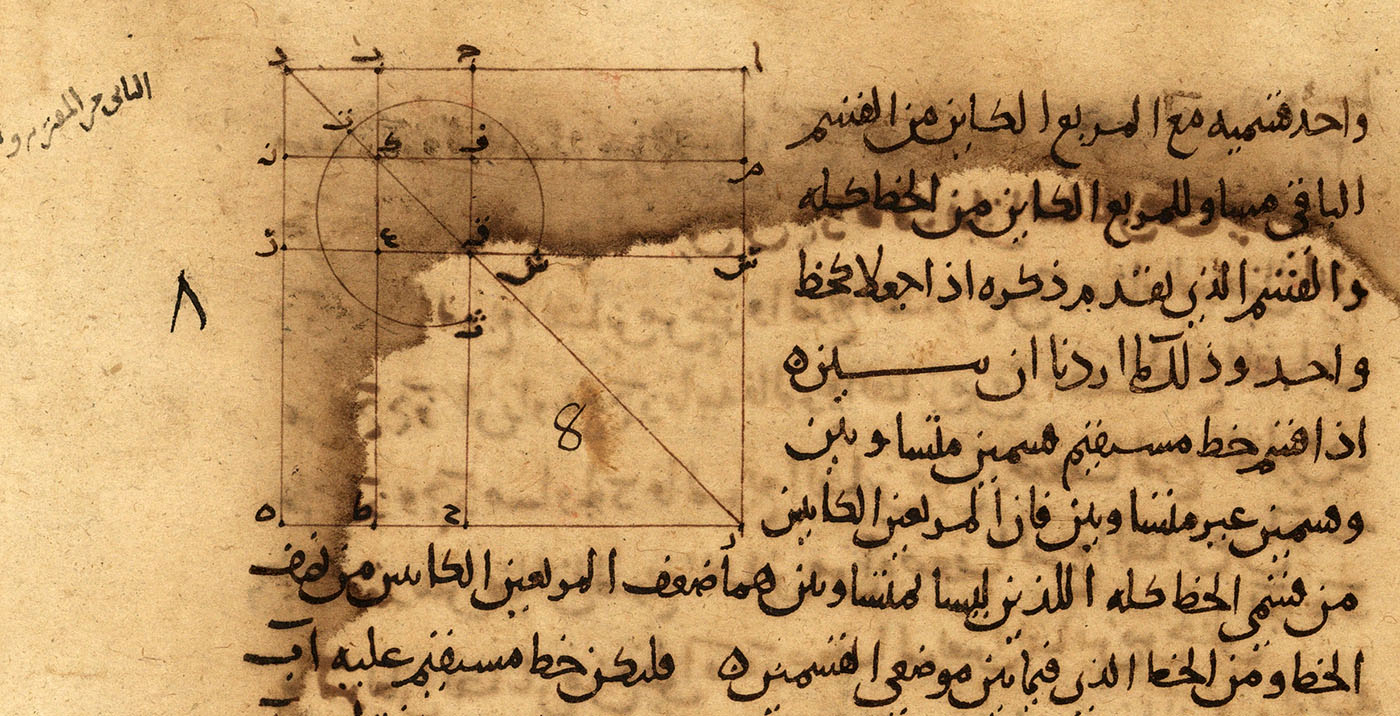 د ب ج ا
ت
ن ك ف م
ع ق ش
ه ط ح
٨
8
واحد قسميه مع المربع الكاين من القسم
الباقي مساو للمربع الكاين من الخط كله
والقسم الذي تقدم ذكره اذا جعلا كخط
واحد وذلك ما اردنا ان نبين ه
اذا قسم خط مستقيم قسمين متساويين
وقسمين غير متساويين فان المربعين الكاينين
من قسمي الخط كله اللذين ليسا بمتساويين هما ضعف المربعين الكاينين من نصف
الخط ومن الخط الذي فيما بين موضعي القسمين ه فليكن خط مستقيم عليه اب